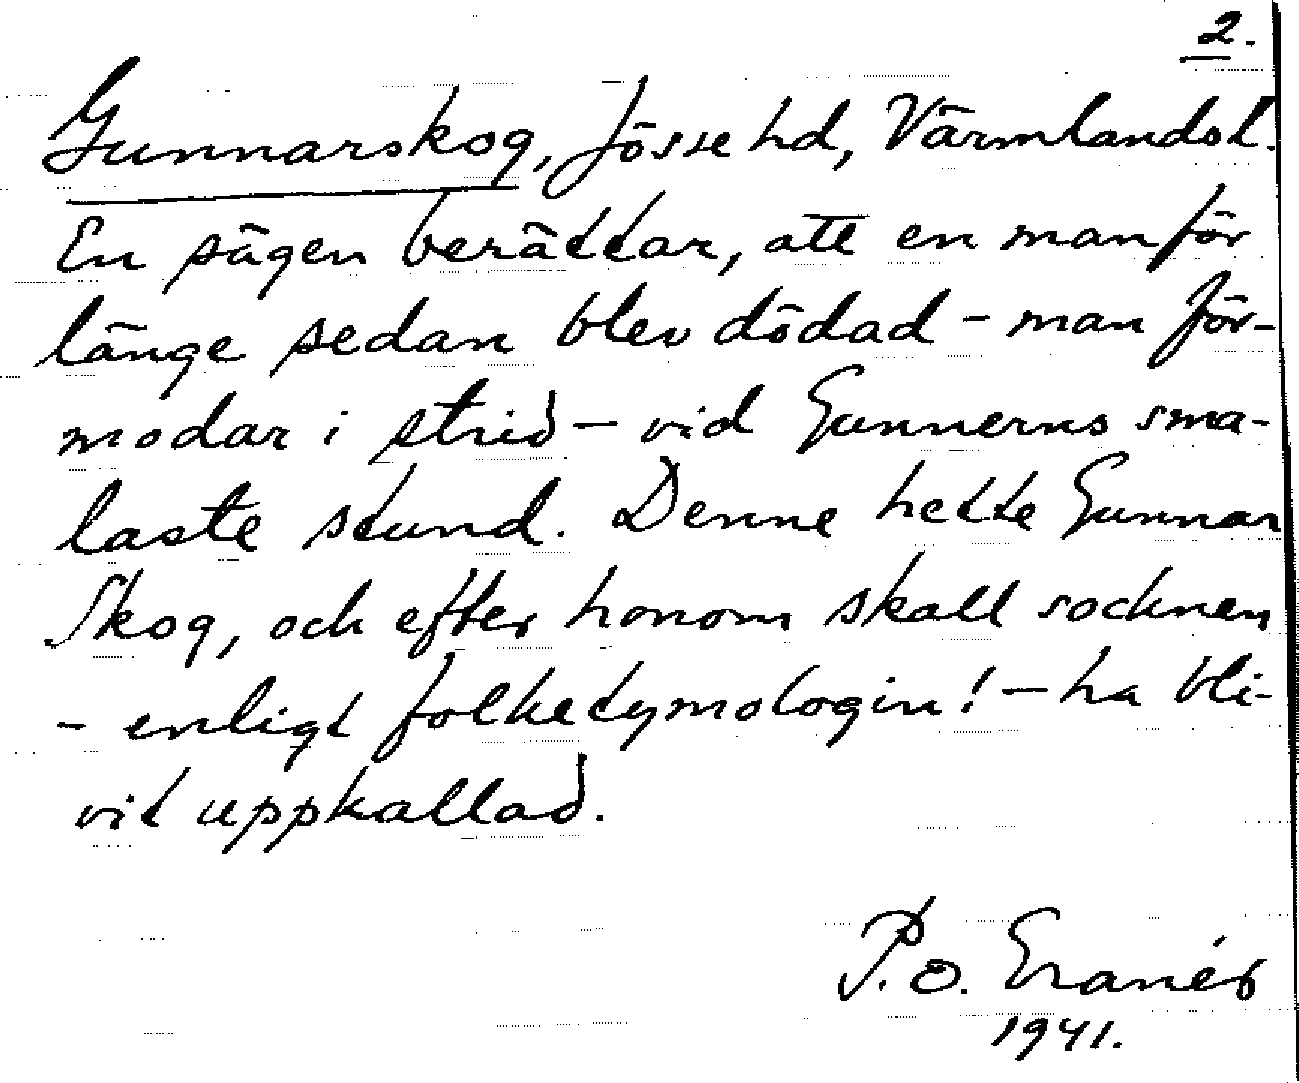 2.
Gunnarskog, Jösse hd, Värmlandsl.
En sägen berättar, att en man för
länge sedan blev dödad – man för-
modar i strid – vid Gunnerns sma-
laste stund. Denne hette Gunnar
Skog, och efter honom skall socknen
– enligt folketymologin! – ha bli-
vit uppkallad.
P. O. Granér
1941.